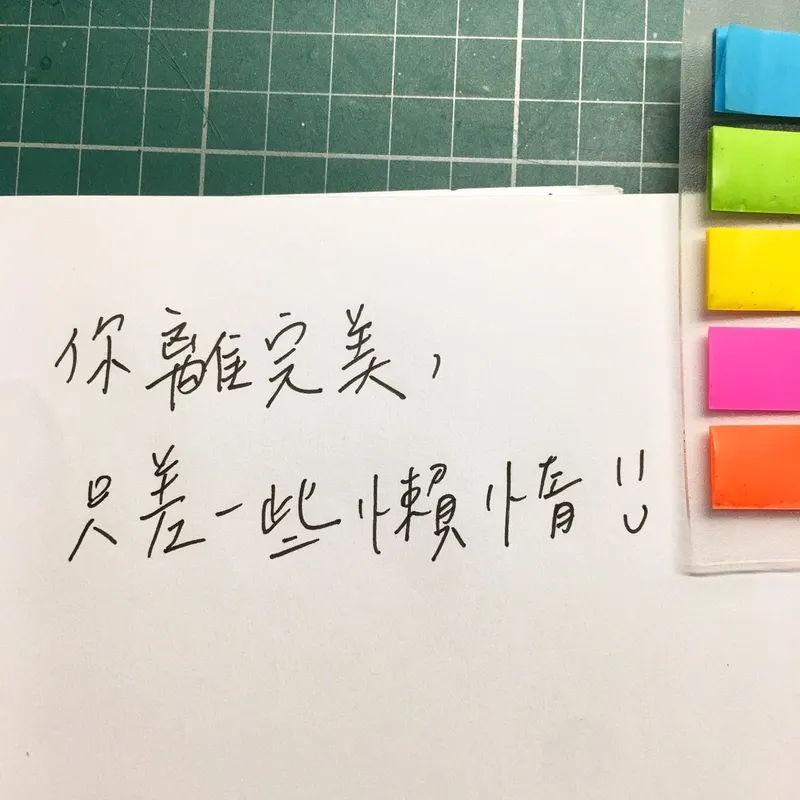 你離完美,
只差一些懶惰!!